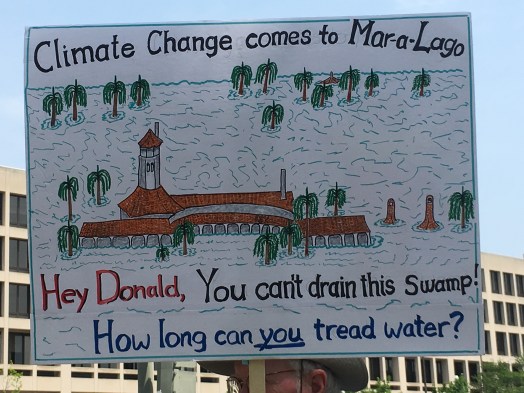 Climate Change comes to Mar-a-Lago
Hey Donald, You can't drain this Swamp!
How long can you tread water?